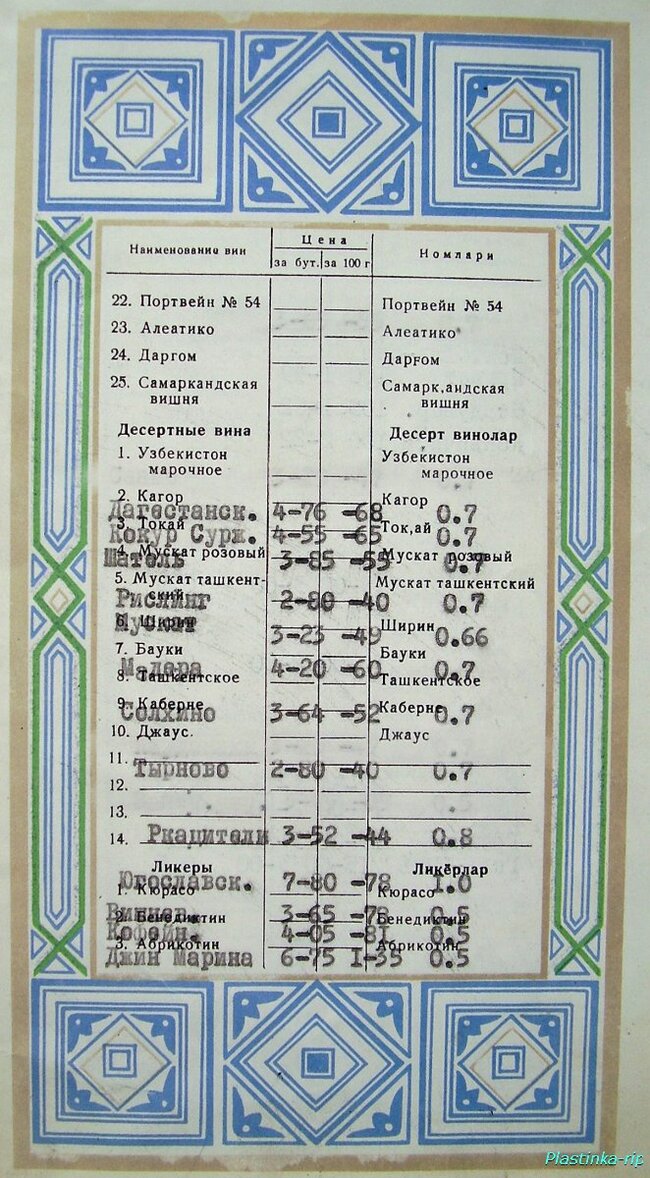 Наименование вин Цена Номлари
за бут. за 100 г
22. Портвейн № 54 Портвейн № 54
23. Алеатико Алеатико
24. Даргом Дарғом
25. Самаркандская Самарқандская
вишня вишня
Десертные вина Десерт винолар
1. Узбекистон Узбекистон
марочное марочное
2. Кагор Кагор
Дагестанск. 4-76 -68 0.7
3. Токай Токай
Кокур Сурж. 4-55 -65 0.7
4. Мускат розовый Мускат розовый
Шатель 3-85 -55 0.7
5. Мускат ташкент- Мускат ташкентский
ский
Рислинг 2-80 -40 0.7
6. Ширин Ширин
Мускат 3-23 -49 0.66
7. Бауки Бауки
Мадера 4-20 -60 0.7
8. Ташкентское Ташкентское
9. Каберне Каберне
Солхино 3-64 -52 0.7
10. Джаус. Джаус
11.
Тырново 2-80 -40 0.7
12.
13.
14. Ркацители 3-52 -44 0.8
Ликеры Ликёрлар
Югославск. 7-80 -78 1.0
1. Кюрасо Кюрасо
3-65 0.5
2. Бенедиктин Бенедиктин
Кофейн. 4-05 -81 0.5
3. Абрикотин Абрикотин
Джин Марина 6-75 1-35 0.5
Plastinka-rip